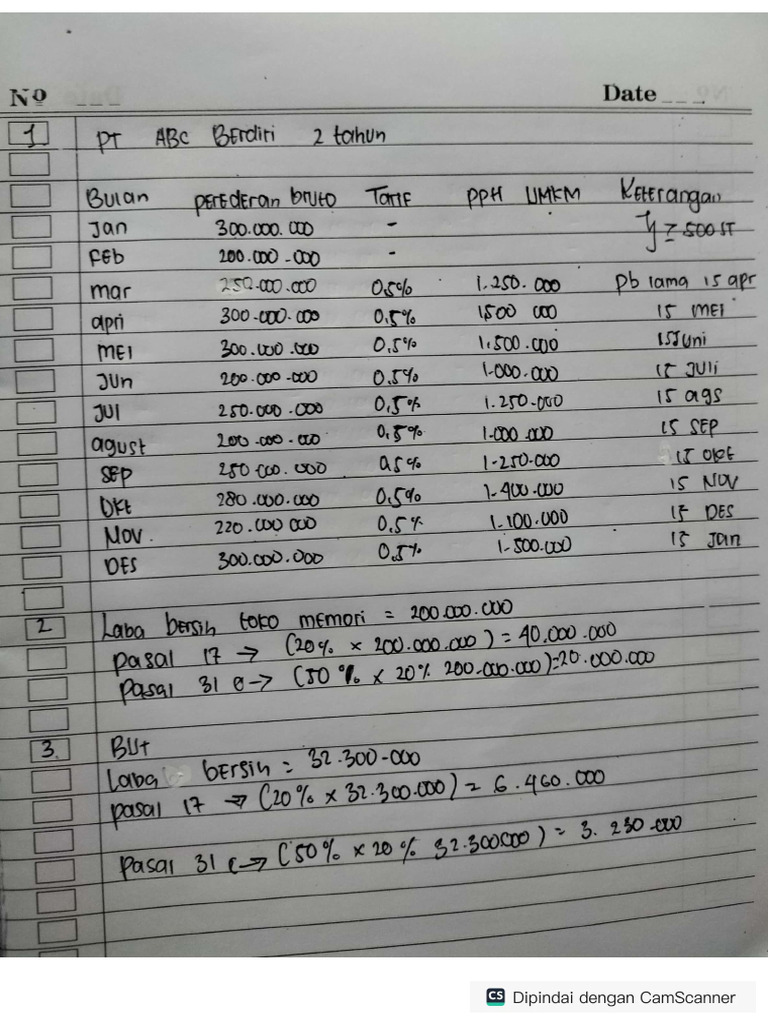 No Date
1 PT ABC Berdiri 2 tahun
Bulan perederan bruto Tarif PPH UMKM Keterangan
Jan 300.000.000 -
Feb 200.000.000 -
mar 250.000.000 0,5% 1.250.000 pb lama 15 apr
apri 300.000.000 0,5% 1500 000 15 MEI
MEI 300.000.000 0,5% 1.500.000 15 Juni
Jun 200.000.000 0,5% 1.000.000 15 Juli
Jul 250.000.000 0,5% 1.250.000 15 ags
agust 200.000.000 0,5% 1.000.000 15 SEP
SEP 250.000.000 0,5% 1.250.000 15 OKT
OKT 280.000.000 0,5% 1.400.000 15 NOV
Nov. 220.000 000 0,5% 1.100.000 15 DES
DES 300.000.000 0,5% 1.500.000 15 Jan
2 Laba bersih toko memori = 200.000.000
pasal 17 → (20% x 200.000.000) = 40.000.000
Pasal 31 e → (50% x 20% 200.000.000) = 20.000.000
3. BUt
Laba bersih = 32.300.000
pasal 17 → (20% x 32.300.000) = 6.460.000
Pasal 31 e → (50% x 20% 32.300000) = 3.230.000
CS Dipindai dengan CamScanner